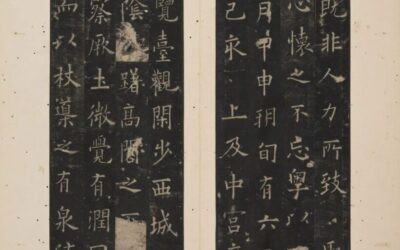 既非人力所致
心懷之不忘粵以
月甲申朔旬有六
己亥上及中宮
覽臺觀閑步西城
陰躇高閣之
察厥土微覺有潤
而以杖導之有泉